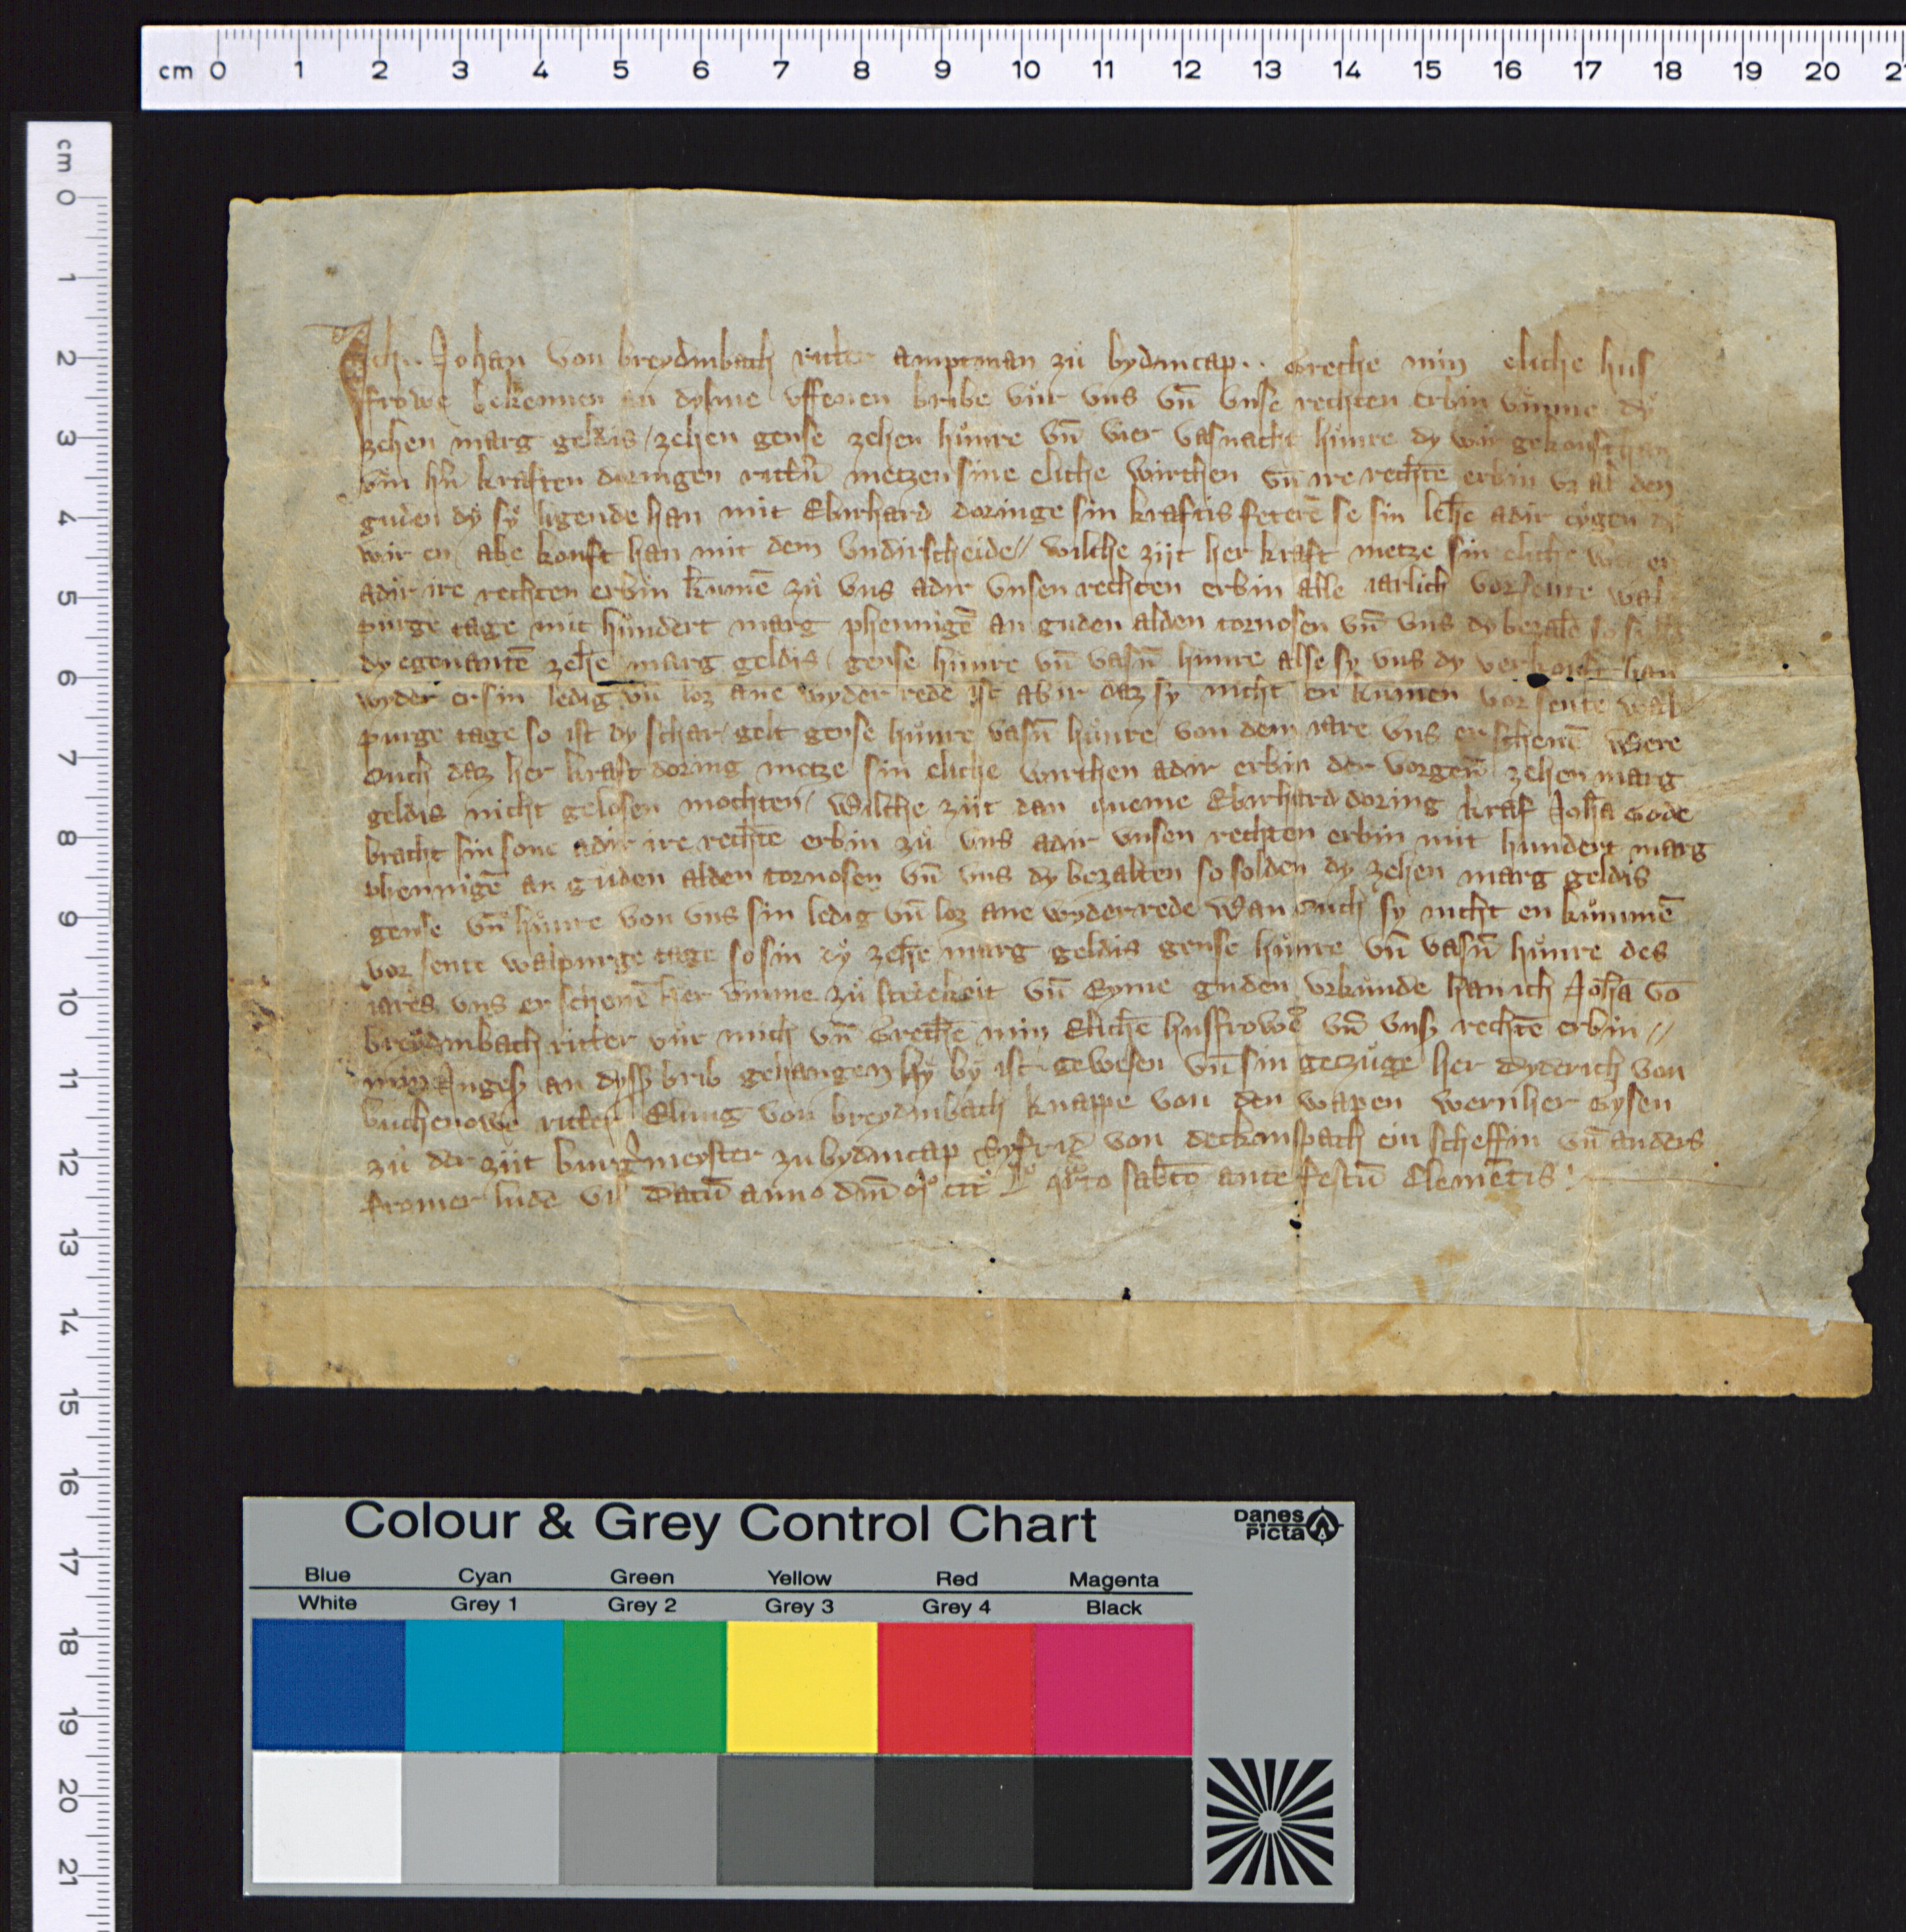 cm 0 1 2 3 4 5 6 7 8 9 10 11 12 13 14 15 16 17 18 19 20
cm 0 1 2 3 4 5 6 7 8 9 10 11 12 13 14 15 16 17 18 19 20 21
Ich .. Johan von breydinbach ritter amptman zů bydincap .. Greche min eliche hus
frowe bekennen an dysme uffenen bribe vůr uns vn̄ unse rechten erbin vmme dy
zehen marg geldis / zehen gense zehen hůnre vn̄ vier vasnacht hůnre dy wir gekouft han
vm hn̄ kraften doringen metzen sine eliche wirthen vn̄ ire rechtē erbin al den
guden dy sy ligende han mit Ebirhard doringe sin kraftis feterē se sin lehē adir eygen
wir en abe kouft han mit dem undirscheide // wilche zijt her kraft metze sin eliche
adir ire rechten erbin kumē zů uns adir unsen rechten erbin alle iarlich vor sente wal
purge tage mit hůndert marg phennigē an guden alden tornosen vn̄ uns dy bezalē so
dy egenantē zehē marg geldis / gense hůnre vn̄ vasn̄ hůnre alse sy uns dy verkouft han
wyder er sin ledig vn̄ loz ane wyder rede ist abir daz sy nicht en kumen vor sente wal
purge tage so ist dy schar / gelt gense hůnre vasn̄ hůnre von dem iare uns erschenē Were
ouch daz her kraft doring metze sin eliche wirthen adir erbin der vorgen̄ zehen marg
geldis nicht gelosen mochten / Wilche zijt dan queme Ebirhard doring kraf Johā Gode
bracht sin sone adir ire rechtē erbin zů uns adir unsen rechten erbin mit hundert marg
phennigē an guden alden tornosen vn̄ uns dy bezalten so solden dy zehen marg geldis
gense vn̄ hůnre von uns sin ledig vn̄ loz ane wyder rede Wan ouch sy nicht en kůmmē
vor sente walpurge tage so sin dy zehē marg geldis gense hůnre vn̄ vasn̄ hůnre des
iares uns erschenē her umme zů stetekeit vn̄ Eyme guden urkůnde han ich Johā vō
breydinbach ritter vůr mich vn̄ Grechē min Elichē husfrowē vn̄ uns rechtē erbin //
min Ingesß an dysß brib gehangen hy by ist gewesen vn̄ sin getzůge her dyderich von
buchenowe ritter Elwig von breydinbach knappe von den wapen wernher Gysen
zů der zijt burg̓meyster zu bydincap Syfrid von deckinspach ein scheffin vn̄ anders
fromer lude vil Datū anno dn̄i mº cccº Lº qrto sabbō ante festū Clemētis
Colour & Grey Control Chart
Danes Picta
Blue Cyan Green Yellow Red Magenta
White Grey 1 Grey 2 Grey 3 Grey 4 Black